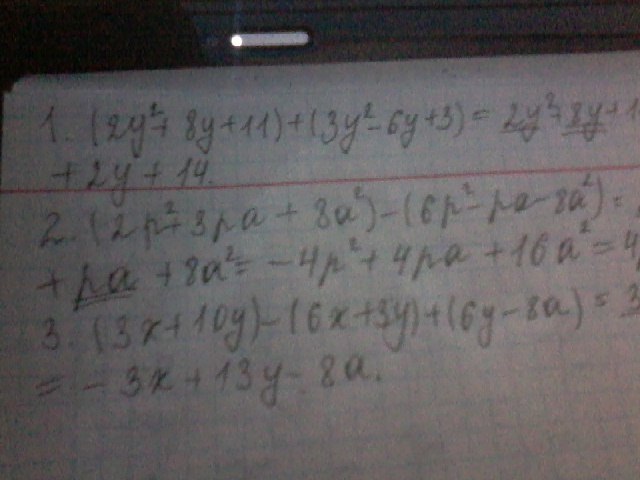 1. (2y²+8y+11)+(3y²-6y+3)= 2y²+8y+1
+2y+14.
2. (2p²+3pa+8a²)-(6p²-pa-8a²)=
+pa+8a²=-4p²+4pa+16a²=4
3. (3x+10y)-(6x+3y)+(6y-8a)=3
=-3x+13y-8a.